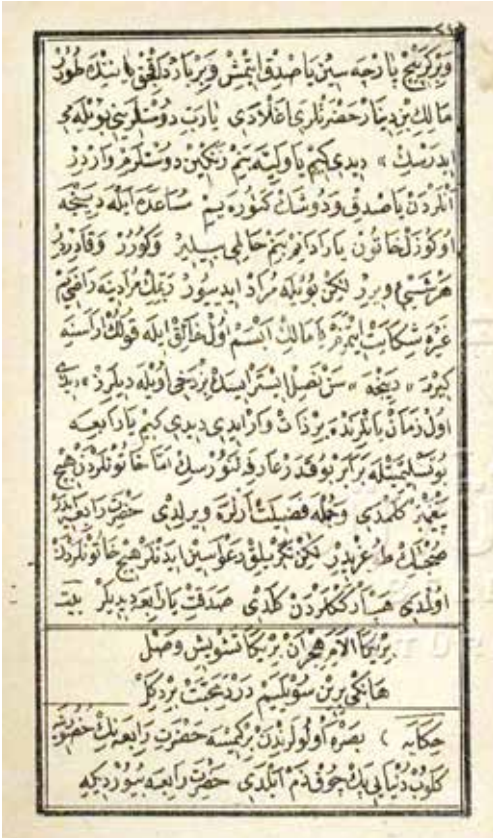 وبر كرپچ پاره سين ياصدق ايتمش وبر بارداقجق ياننده طورر
مالك بن دينار حضرتلرى اغلادى يارب دوستلريڭى بويله مى
ايدرسك » ديدى كيم يا وليه بنم زنكين دوستلرم واردر
انلردن ياصدق ودوشك كتوره يم مساعده ايله دينجه
او كوزل خاتون يارادانم بنم حالمى بيلير وكورر وقادردر
هر شيئ ويرر لكن بويله مراد ايدييور ربمك مرادينه راضى يم
غيره شكايت ايتمم يا مالك ابسم اول خالق ايله قولك اراسنه
كيرمه » دينجه » سن نصل ايسترايسك بز دخى اويله ديلرز » ديدى
اول زمان يانلرنده بر ذات وار ايدى ديدى كيم يا رابعه
بو تسليميتله برابر بو قدر عارفه لنورسك اما خاتونلردن هيچ
پيغمبر كلمدى وجمله فضيلت ارلره ويرلدى حضرت رابعه ديدى
ضحاك طوغريدر لكن تكريلق دعواسين ايدنلر هيچ خاتونلردن
اولمدى هپ ارككلردن كلدى صدقت يا رابعه ديديلر بيت
بريڭا الام هجران بر يكا تشويش وصل
هانكى برين سويليم درد محبت بر دكل
حكايه ) بصره اولولرندن بر كيمسه حضرت رابعه نك حضورينه
كلوب دنيايى پك چوق ذم ايلدى حضرت رابعه بيور ديكه